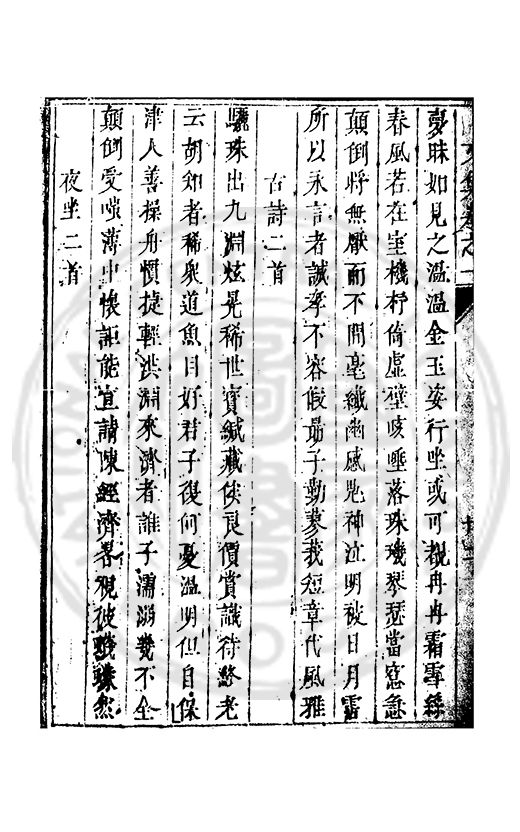 夢昧如見之溫溫金玉姿行坐或可覩冉冉霜雪絲
春風若在室機杼倚虛壁咳唾落珠璣琴瑟當窓急
顛倒將無厭而不間毫纖幽感鬼神泣明被日月露
所以永言者誠孝不容假勗子勤蓼莪短章代風雅
古詩二首
驪珠出九淵炫晃稀世寶緘藏俟良價賞識待終老
云胡知者稀衆道魚目好君子復何憂溫明但自保
津人善操舟慣捷輕洪淵來濟者誰子濡溺幾不全
顛倒受嗤薄中懷詎能宣請陳經濟畧視彼
夜坐二首